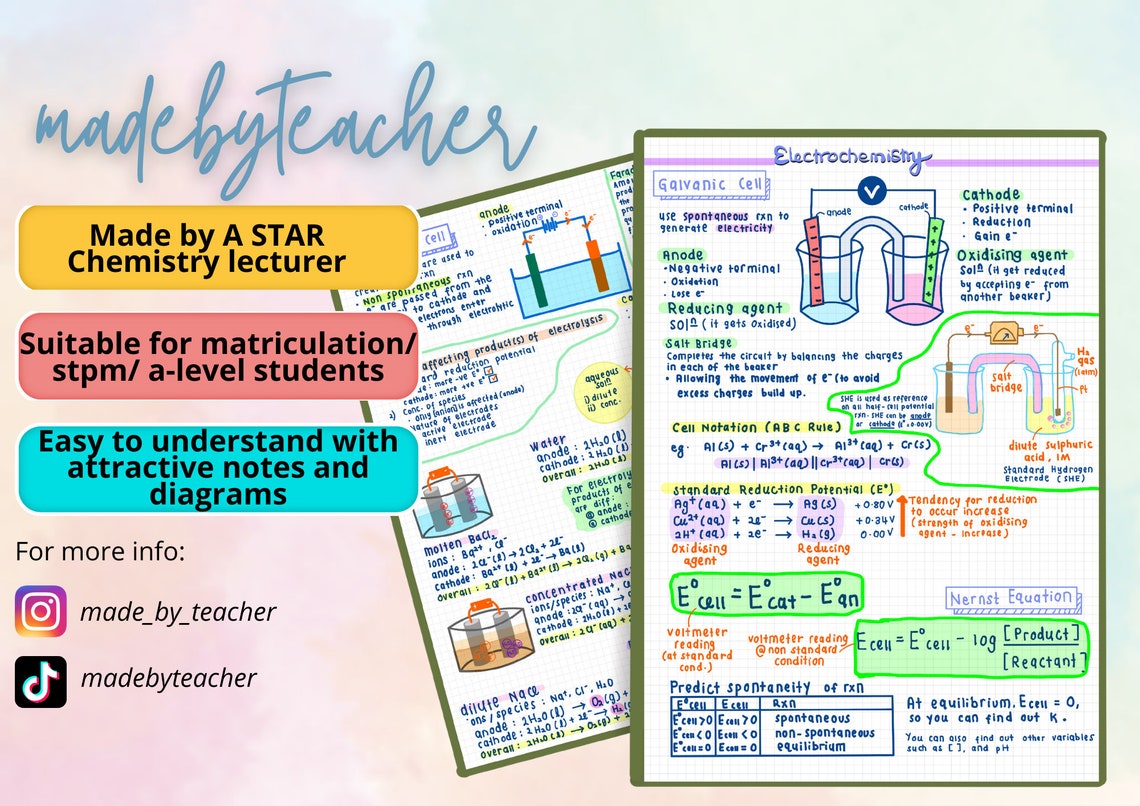 madebyteacher
Made by A STAR
Chemistry lecturer
Suitable for matriculation/
stpm/ a-level students
Easy to understand with
attractive notes and
diagrams
For more info:
made_by_teacher
madebyteacher
anode
• positive terminal
• oxidation
cell
are used to
rxn
• Non spontaneous rxn
e⁻ are passed from the
to cathode and
electrons enter
through electrolytic
affecting product(s) of electrolysis
ard reduction potential
cathode: more +ve E°
Conc. of species
only (anion) is affected (anode)
Nature of electrodes
active electrode
inert electrode
aqueous
solⁿ
i) dilute
ii) conc.
Water
anode : 2H₂O(l)
cathode : 2H₂O(l)
overall : 2H₂O(l)
For electroly
products of e
are diff.
@ anode :
@ cathode
Molten BaCl₂
ions : Ba²⁺, Cl⁻
anode : 2Cl⁻(l) → Cl₂(g) + 2e⁻
cathode : Ba²⁺(l) + 2e⁻ → Ba(l)
overall : 2Cl⁻(l) + Ba²⁺(l) → Cl₂(g) + Ba
concentrated NaC
ions/species : Na⁺, C
anode : 2Cl⁻(aq) →
cathode : 2H₂O(l) +
Overall : 2Cl⁻(aq) +
dilute NaCl
ions/species : Na⁺, Cl⁻, H₂O
anode : 2H₂O(l) → O₂(g) +
cathode : 2H₂O(l) + 2e⁻ → H₂(g
overall : 2H₂O(l) → O₂(g) +
Electrochemistry
Galvanic Cell
use spontaneous rxn to
generate electricity
V
anode
cathode
Anode
• Negative terminal
• Oxidation
• Lose e⁻
Reducing agent
solⁿ (it gets oxidised)
Cathode
• Positive terminal
• Reduction
• Gain e⁻
Oxidising agent
Solⁿ (it get reduced
by accepting e⁻ from
another beaker)
Salt Bridge
Completes the circuit by balancing the charges
in each of the beaker
• Allowing the movement of e⁻ (to avoid
excess charges build up.
e⁻
e⁻
H₂
gas
(1atm)
Pt
salt
bridge
SHE is used as reference
on all half-cell potential
rxn. SHE can be anode
or cathode (E°=0.00V)
dilute sulphuric
acid, 1M
Standard Hydrogen
Electrode (SHE)
Cell Notation (ABC Rule)
eg. Al(s) + Cr³⁺(aq) → Al³⁺(aq) + Cr(s)
Al(s) | Al³⁺(aq) || Cr³⁺(aq) | Cr(s)
Standard Reduction Potential (E°)
Ag⁺(aq) + e⁻ → Ag(s) +0.80V
Cu²⁺(aq) + 2e⁻ → Cu(s) +0.34V
2H⁺(aq) + 2e⁻ → H₂(g) 0.00V
Oxidising
agent
Reducing
agent
Tendency for reduction
to occur increase
(strength of oxidising
agent - increase)
E°cell = E°cat - E°an
voltmeter
reading
(at standard
cond.)
Nernst Equation
voltmeter reading
@ non standard
condition
Ecell = E°cell - log [Product]
[Reactant]
Predict spontaneity of rxn
E°cell Ecell Rxn
E°cell>0 Ecell>0 spontaneous
E°cell<0 Ecell<0 non-spontaneous
E°cell=0 Ecell=0 equilibrium
At equilibrium, Ecell = 0,
so you can find out K.
You can also find out other variables
such as [ ], and pH